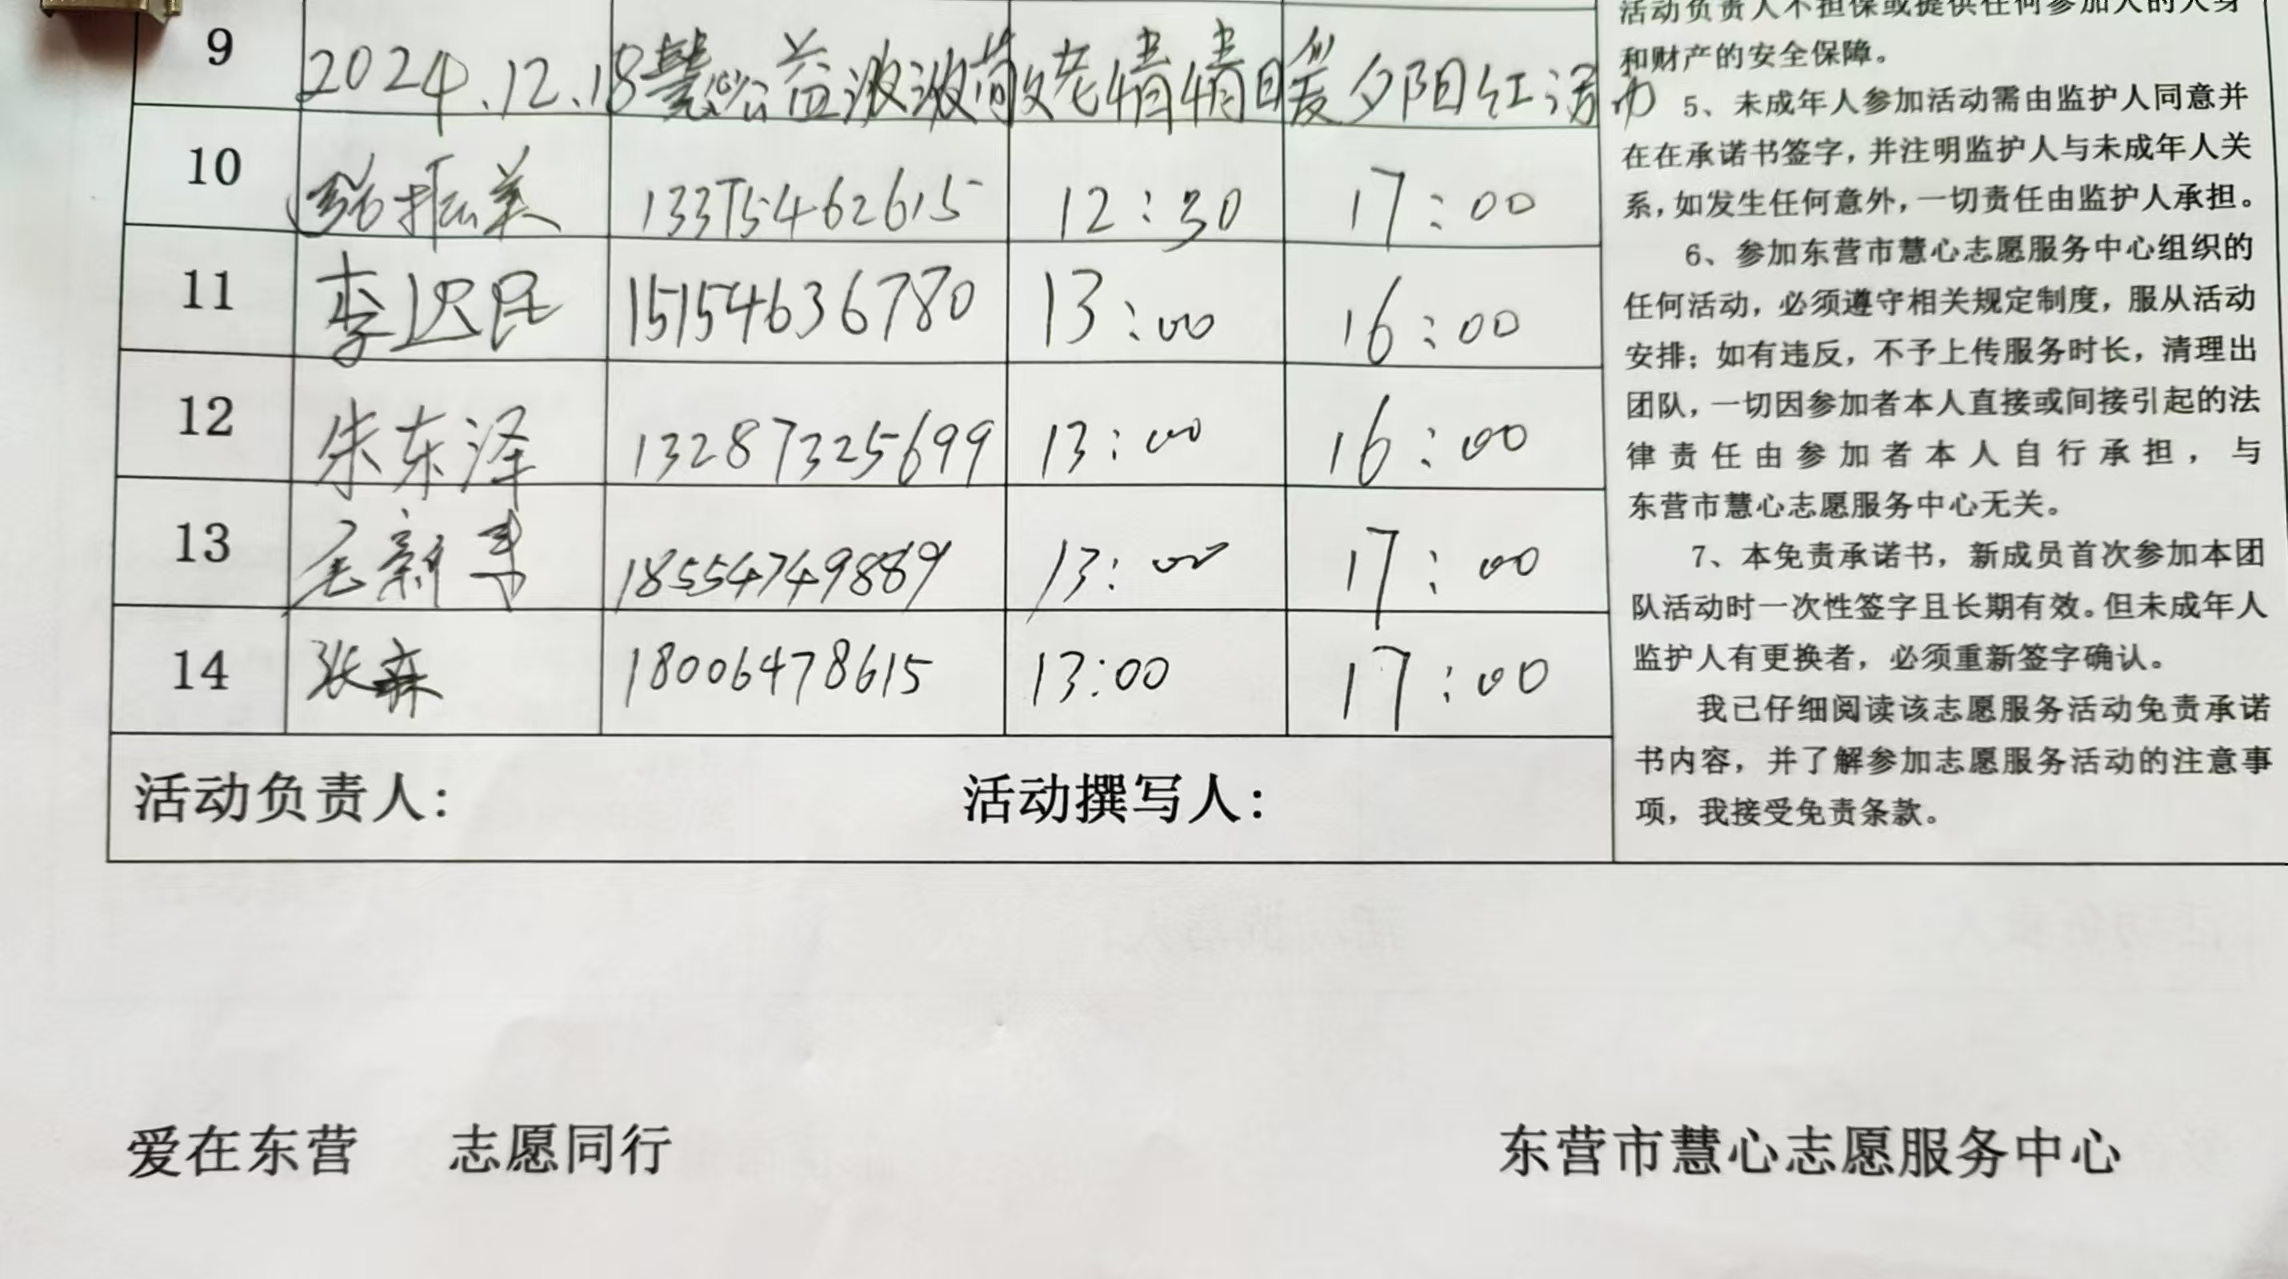 9 2024.12.18慧心公益波波敬老情情暖夕阳红活动
10 张振美 13375462615 12:30 17:00
11 李迟民 15154636780 13:00 16:00
12 朱东泽 13287325699 13:00 16:00
13 18554749889 13:00 17:00
14 张森 18006478615 13:00 17:00
活动负责人： 活动撰写人：
活动负责人不担保或提供任何参加人的人身
和财产的安全保障。
5、未成年人参加活动需由监护人同意并
在在承诺书签字，并注明监护人与未成年人关
系，如发生任何意外，一切责任由监护人承担。
6、参加东营市慧心志愿服务中心组织的
任何活动，必须遵守相关规定制度，服从活动
安排；如有违反，不予上传服务时长，清理出
团队，一切因参加者本人直接或间接引起的法
律责任由参加者本人自行承担，与
东营市慧心志愿服务中心无关。
7、本免责承诺书，新成员首次参加本团
队活动时一次性签字且长期有效。但未成年人
监护人有更换者，必须重新签字确认。
我已仔细阅读该志愿服务活动免责承诺
书内容，并了解参加志愿服务活动的注意事
项，我接受免责条款。
爱在东营 志愿同行
东营市慧心志愿服务中心